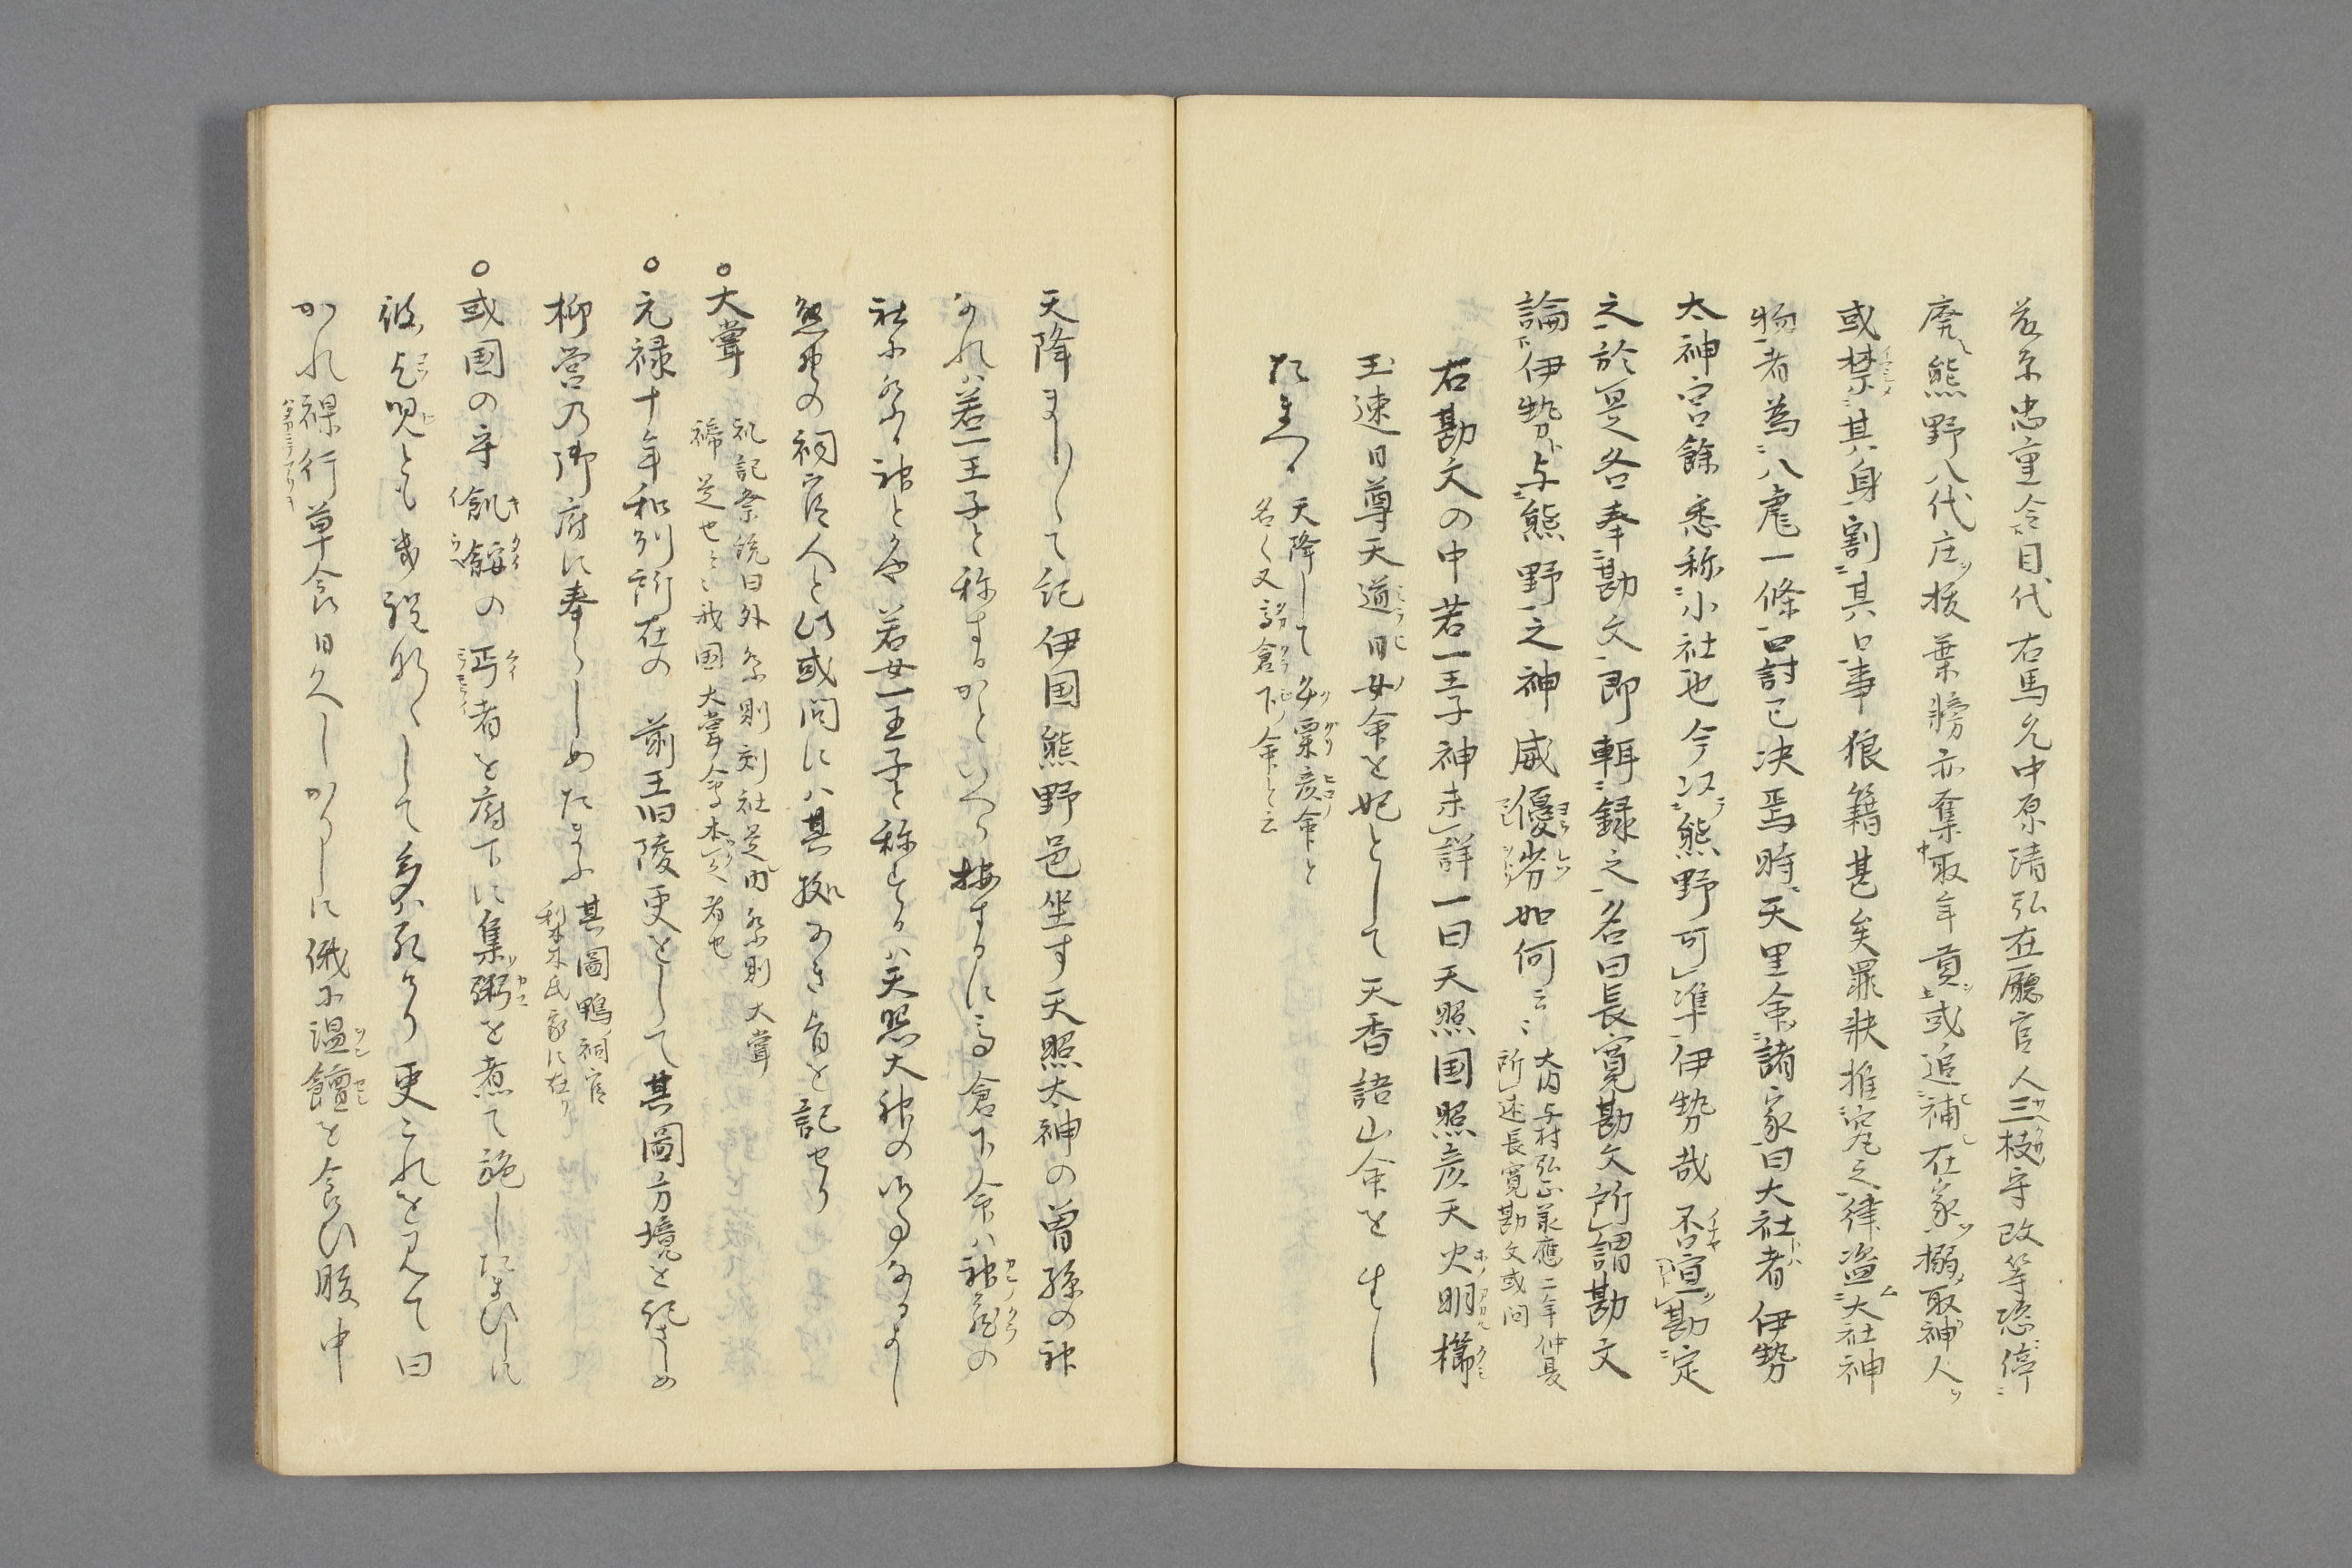 忠重令目代右馬允中原清弘在廳官人三枝守政等恣停
廃熊野八代庄抜棄牓示奪取年貢或追補在家搦取神人
或禁其身割其口事狼籍甚矣罪状推究之律盗大社神
物者為八虐一條曰討已决焉時天里命諸家曰大社者伊勢
太神宮餘悉称小社也今以熊野可准伊勢哉否宣勘定
之於是各奉勘文即輯録之名曰長寛勘文所謂勘文
論伊勢与熊野之神威優劣如何云云
大内与村弘正承應二年仲夏
所述長寛勘文或問
右勘文の中若一王子神未詳一曰天照国照彦天火明櫛
玉速日尊天道日女命を妃として天香語山命を生し
たまへり
天降して名手栗彦命と
名く又高倉下命と云
天降ましまして記伊国熊野邑坐す天照太神の曽孫の神
なれハ若一王子と称するかといへり按するに高倉下命ハ神蔵の
社に祭る神とかや若女一王子と称するハ天照大神の御事なるよし
熊野の祠官人と此或問にハ其拠なき旨を記せり
○大嘗
礼記祭統曰外祭則郊社是内祭則大嘗
禘是也云云我国大嘗會本天者也
○元禄十年和州所在の 前王旧陵更として其圖方境を記さしめ
柳営乃御府に奉らしめたまふ
其圖鴨祠官
梨木氏家に在り
○或国の守飢餒の丐者を府下に集粥を煮て施したまひしに
彼乞児とも幾程なくして多ハ死けり更これを見て曰
かれ裸行草食日久しかりしに俄に温饘を食ひ腹中